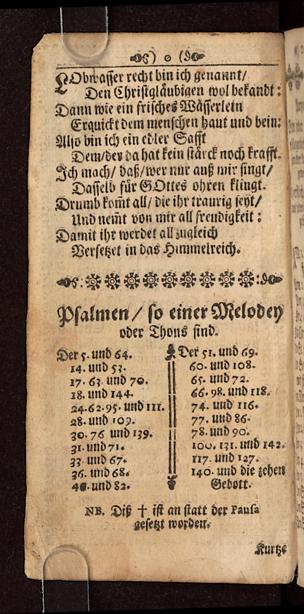 LObwasser recht bin ich genannt/
Den Christgläubigen wol bekandt:
Dann wie ein frisches Wässerlein
Erquickt dem menschen haut und bein:
Also bin ich ein edler Safft
Dem/der da hat kein stärck noch krafft.
Ich mach/daß/wer nur auß mir singt/
Dasselb für GOttes ohren klingt.
Drumb kom̃t all/die ihr traurig seyt/
Und nem̃t von mir all freudigkeit:
Damit ihr werdet all zugleich
Versetzet in das Himmelreich.
Psalmen/so einer Melodey
oder Thons sind.
Der 5. und 64.
14. und 53.
17. 63. und 70.
18. und 144.
24. 62. 95. und 111.
28. und 109.
30. 76 und 139.
31. und 71.
33. und 67.
36. und 68.
46. und 82.
Der 51. und 69.
60. und 108.
65. und 72.
66. 98. und 118.
74. und 116.
77. und 86.
78. und 90.
100. 131. und 142.
117. und 127.
140. und die zehen
Gebott.
NB. Diß † ist an statt der Pausa
gesetzt worden.
Kurtze